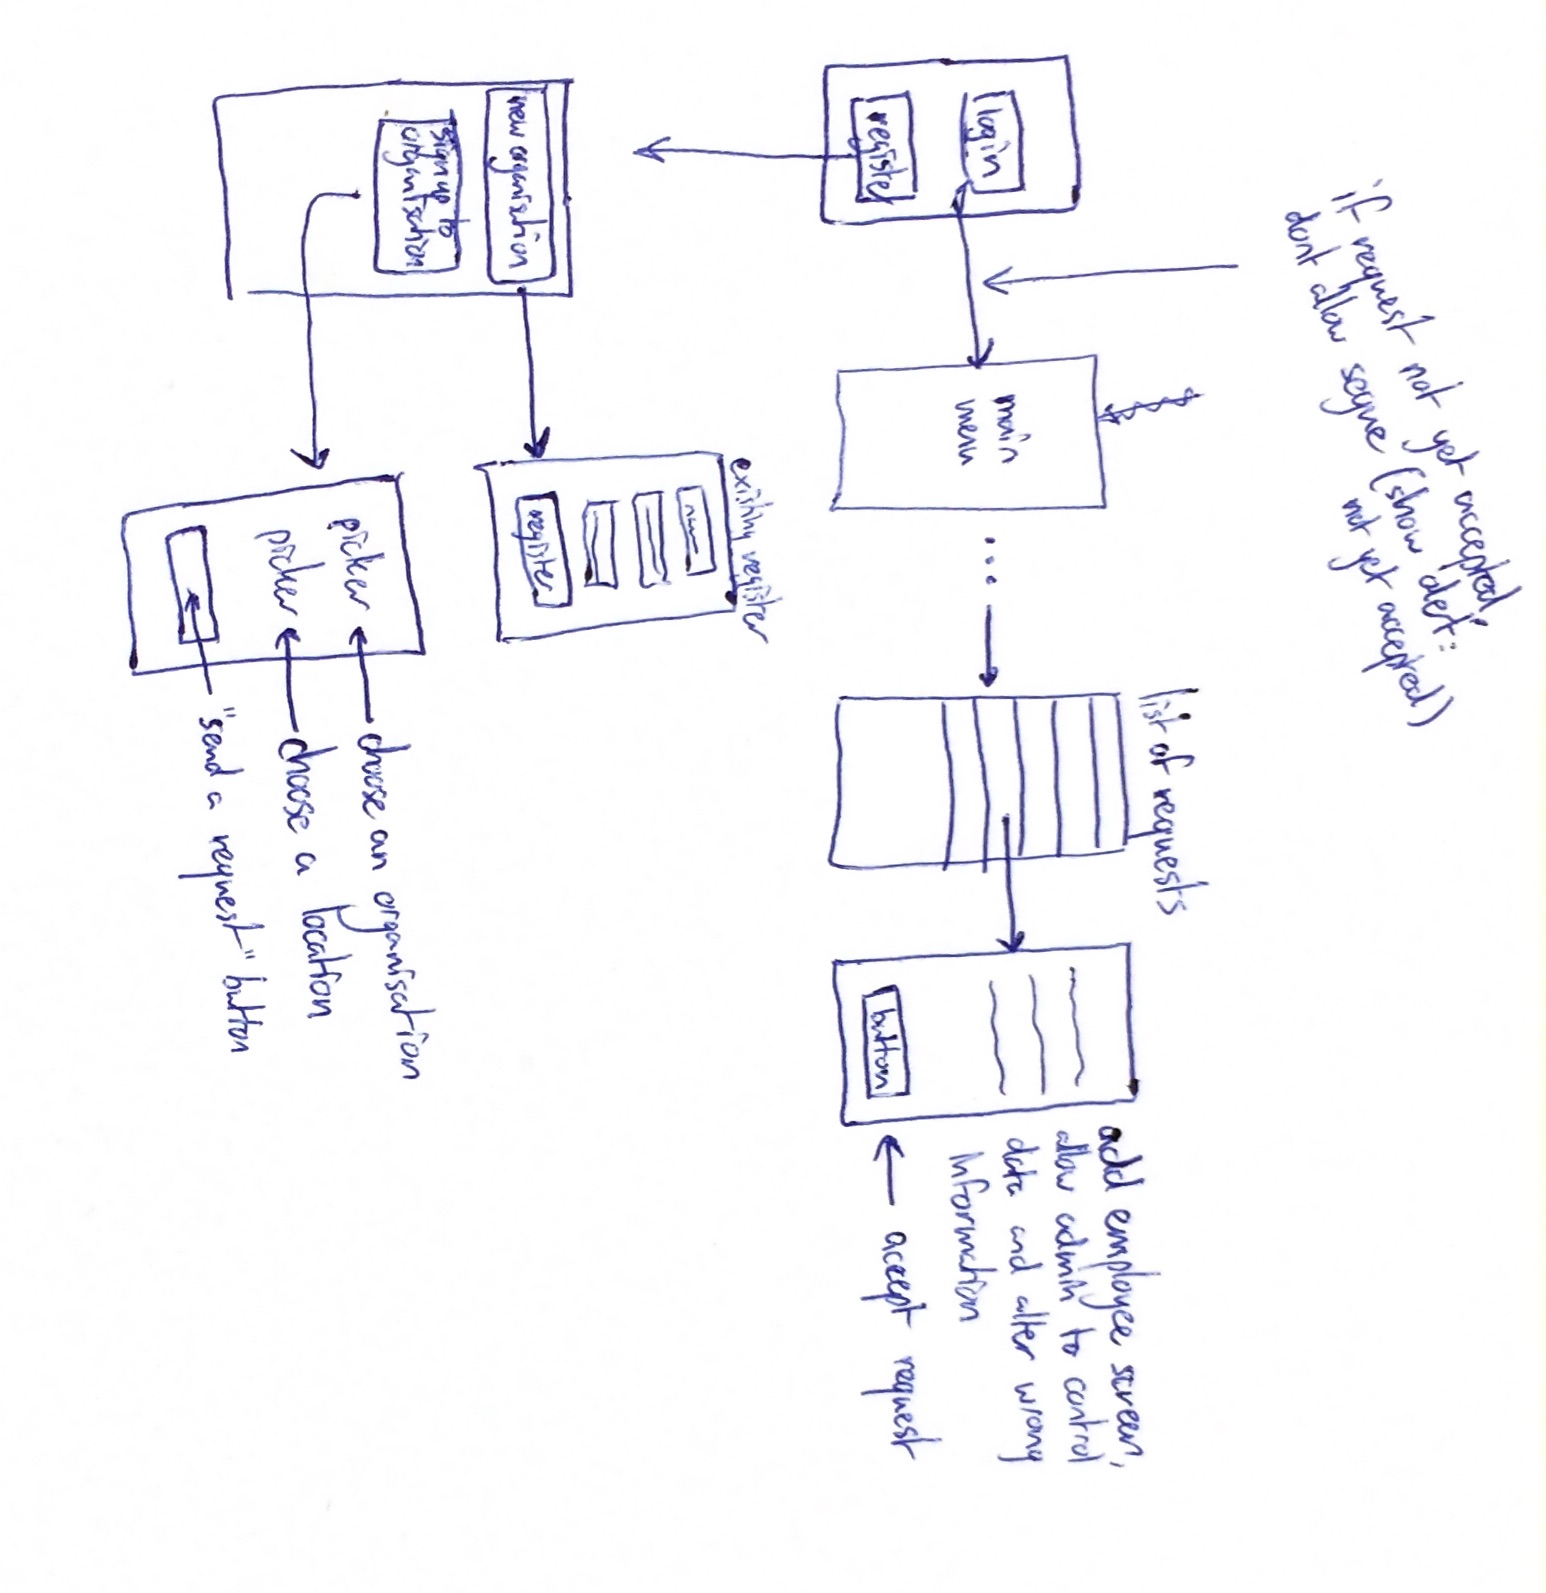 if request not yet accepted,
dont allow segue (show alert:
not yet accepted)
list of requests
login
register
main
menu
...
add employee screen,
allow admin to control
data and alter wrong
information
button
accept request
existing register
register
new organisation
sign up to
organisation
picker
choose an organisation
picker
choose a location
"send a request" button